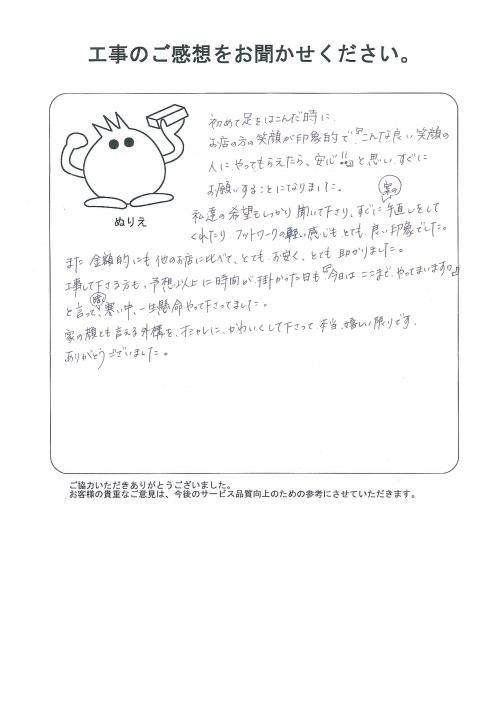 工事のご感想をお聞かせください。
初めて足をはこんだ時に
お店の方の笑顔が印象的で『こんな良い笑顔の
人に、やってもらえたら、安心!!』と思い、すぐに
お願いすることになりました。
ぬりえ
私達の希望もしっかり聞いて下さり、すぐに案の手直しをして
くれたり フットワークの軽い感じも とても 良い印象でした。
また 金額的にも 他のお店に比べて、とても お安く、とても 助かりました。
工事して下さる方も、予想以上に時間が 掛かった日も『今日は ここまで やってまいます。』
と言って、暗い寒い中、一生懸命やって下さってました。
家の顔とも言える外構を、オシャレに、かわいくして下さって 本当、嬉しい限りです。
ありがとうございました。
ご協力いただきありがとうございました。
お客様の貴重なご意見は、今後のサービス品質向上のための参考にさせていただきます。